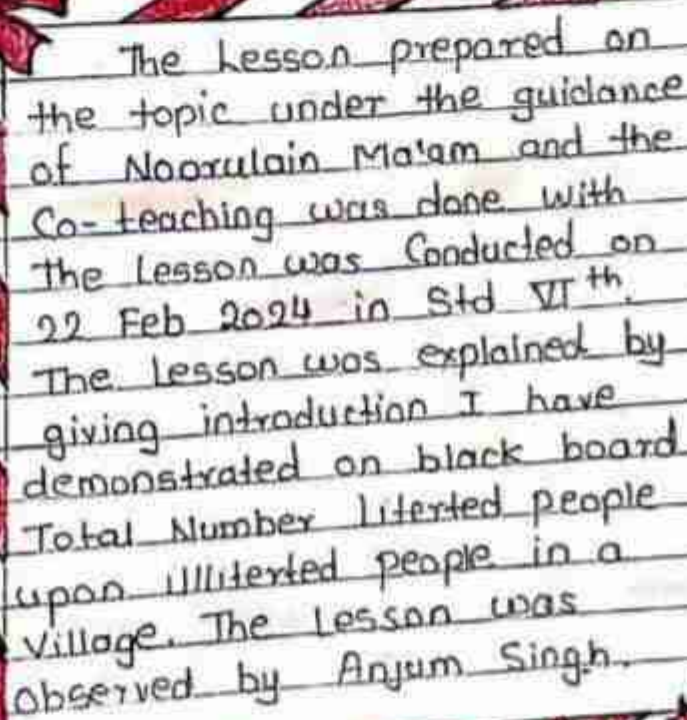 The Lesson prepared on
the topic under the guidance
of Noorulain Ma'am and the
Co-teaching was done with
The Lesson was Conducted on
22 Feb 2024 in Std VIth.
The Lesson was explained by
giving introduction I have
demonstrated on black board
Total Number literted people
upon illiterted people in a
Village. The Lesson was
Observed by Anjum Singh.